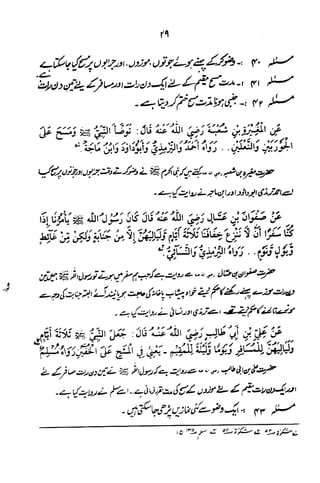 ۲۹
مسئلہ ۴۰ :- وضو کر کے پہنے ہوئے جوتوں، موزوں، اور جرابوں پر مسح کیا جا سکتا ہے
مسئلہ ۴۱ :- مدت مسح مقیم کے لئے ایک دن رات اور مسافر کے لئے تین دن رات ہے
مسئلہ ۴۲ :- جنبی ہونا مدت مسح ختم کر دیتا ہے۔
عَنِ الْمُغِيْرَةِ بْنِ شُعْبَةَ رَضِيَ اللّٰهُ عَنْهُ قَالَ: تَوَضَّأَ النَّبِيُّ ﷺ وَمَسَحَ عَلَى
الْجَوْرَبَيْنِ وَالنَّعْلَيْنِ . . رَوَاهُ أَحْمَدُ وَالتِّرْمِذِيُّ وَأَبُوْدَاوُدَ وَابْنُ مَاجَةَ
حضرت مغیرہ بن شعبہ رضی اللہ عنہ سے روایت ہے کہ نبی اکرم ﷺ نے وضو کرتے وقت جرابوں اور جوتوں پر مسح کیا
اسے احمد ترمذی ابو داؤد اور ابن ماجہ نے روایت کیا ہے۔
عَنْ صَفْوَانَ بْنِ عَسَّالٍ رَضِيَ اللّٰهُ عَنْهُ قَالَ كَانَ رَسُوْلُ اللّٰهِ ﷺ يَأْمُرُنَا إِذَا
كُنَّا سَفْرًا أَنْ لَا نَنْزِعَ خِفَافَنَا ثَلَاثَةَ أَيَّامٍ وَلَيَالِيَهُنَّ إِلَّا مِنْ جَنَابَةٍ وَلٰكِنْ مِنْ غَائِطٍ
وَبَوْلٍ وَنَوْمٍ . . رَوَاهُ التِّرْمِذِيُّ وَالنَّسَائِيُّ
حضرت صفوان بن عسال رضی اللہ عنہ سے روایت ہے کہ جب ہم سفر میں ہوتے تو رسول اللہ ﷺ ہمیں تین
دن رات موزے پہنے رکھنے کا حکم دیتے خواہ پیشاب پاخانہ کی حاجت ہو یا نیند آئے البتہ جنابت کی وجہ سے
موزے اتارنے کا حکم دیتے تھے۔ اسے ترمذی اور نسائی نے روایت کیا ہے۔
عَنْ عَلِيِّ بْنِ أَبِيْ طَالِبٍ رَضِيَ اللّٰهُ عَنْهُ قَالَ: جَعَلَ النَّبِيُّ ﷺ ثَلَاثَةَ أَيَّامٍ
وَلَيَالِيَهُنَّ لِلْمُسَافِرِ وَيَوْمًا وَلَيْلَةً لِلْمُقِيْمِ - يَعْنِيْ فِي الْمَسْحِ عَلَى الْخُفَّيْنِ رَوَاهُ مُسْلِمٌ
حضرت علی بن ابی طالب رضی اللہ عنہ سے روایت ہے کہ رسول اللہ ﷺ نے تین دن رات مسافر کے لئے
اور ایک دن رات مقیم کے لئے موزوں کے مسح کی مدت مقرر فرمائی ہے۔ اسے مسلم نے روایت کیا ہے۔
مسئلہ ۴۳ :- ایک وضو سے کئی نمازیں پڑھی جا سکتی ہیں۔